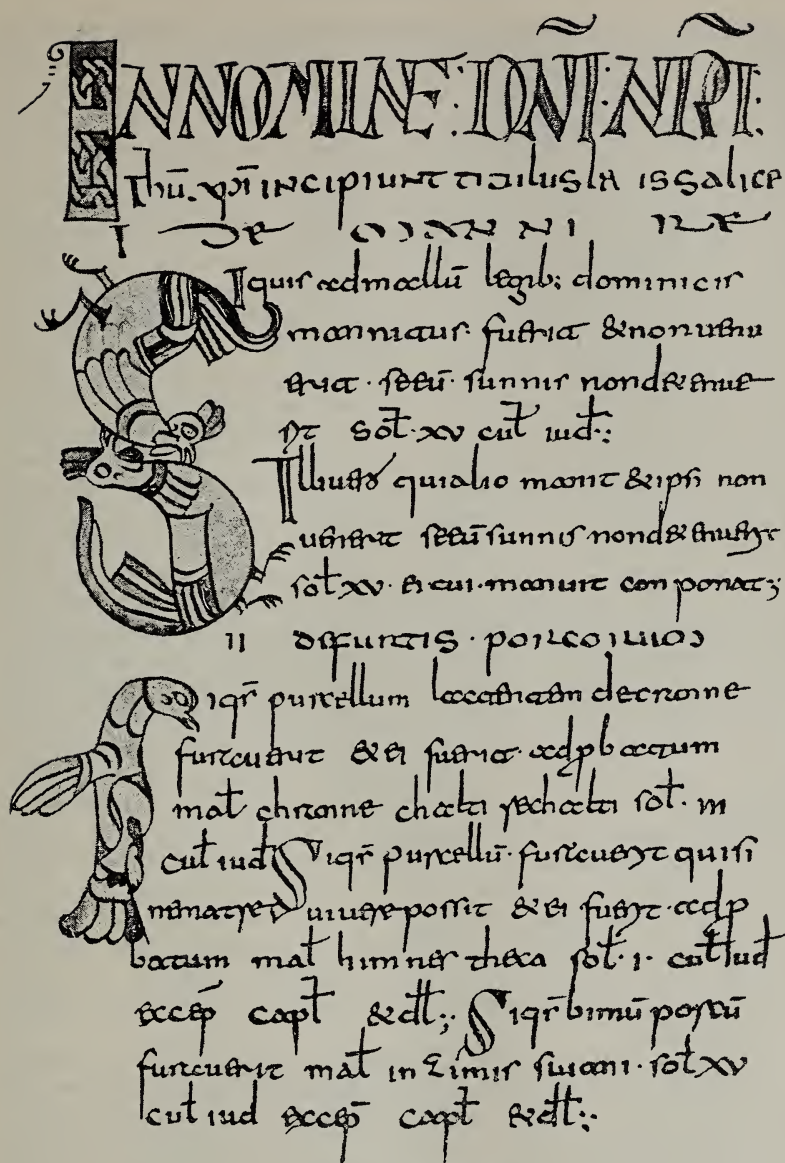 IN NOMINE : DNI : NRI :
Ihu. xpi incipiunt titulus legis salice
I DE MANNIRE
Siquis ad mallu legib; dominicis
mannitus · fuerit & non uenu
erit · seeu · sunnis non detenue
rit sol · xv cul iud :;
Ille uero qui alio manit & ipsi non
uenerit seeu sunnis non detenuerit
sol xv · ei cui · manuit conponat ;
II DE FURTIS · PORCORUM
Siqr purcellum lactantem de crane
furauerit & ei fuerit · adpbatum
mal chranne chalti rechalti sol · III
cul iud Siqr purcellu · furauerit qui si
ne matre uiuere possit & ei fuerit · adp
batum mal himnes theca sol · I · cul iud
excep capl & dl :; Siqr bimu porcu
furauerit mal in zimis suiani · sol xv
cul iud excep capl & dl :;